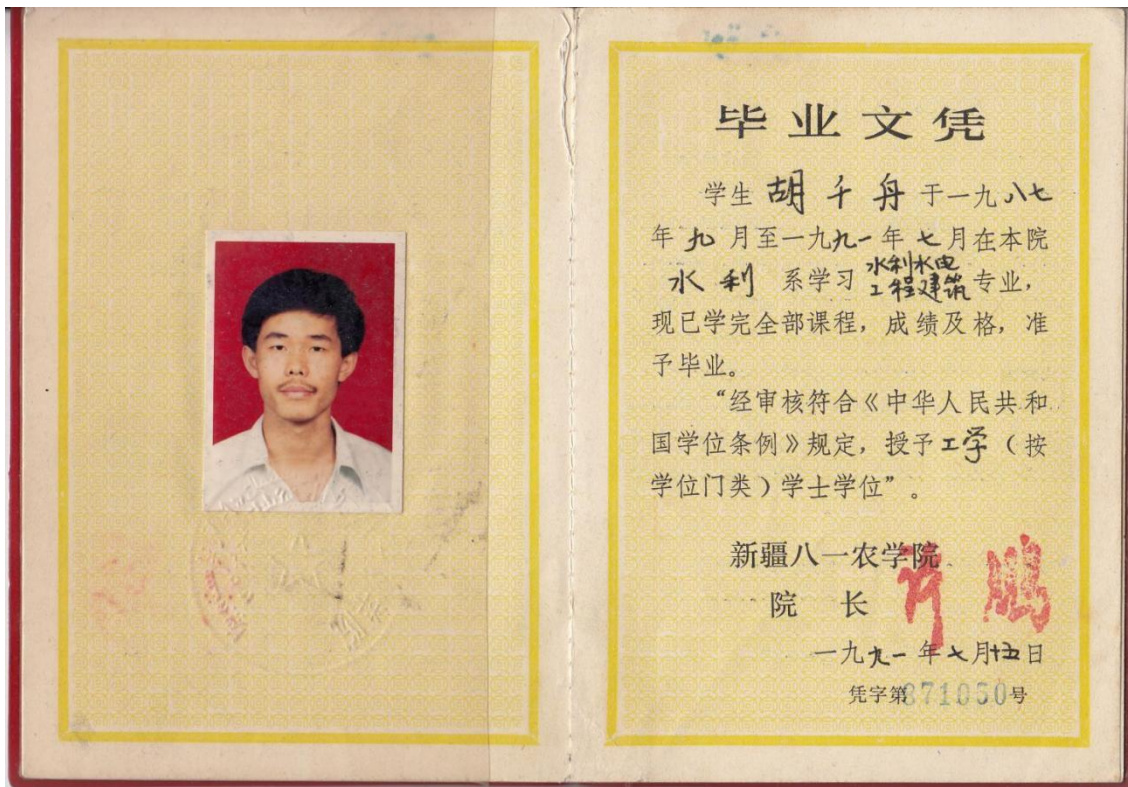 毕业文凭
学生 胡千舟 于一九八七
年九月至一九九一年七月在本院
水利 系学习 水利水电工程建筑 专业，
现已学完全部课程，成绩及格，准
予毕业。
“经审核符合《中华人民共和
国学位条例》规定，授予工学（按
学位门类）学士学位”。
新疆八一农学院
院 长 许鹏
一九九一年七月十五日
凭字第871050号